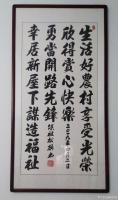 生活好農村享受光榮
欣得賞心快樂
勇當開路先鋒
幸居新屋下謀造福祉